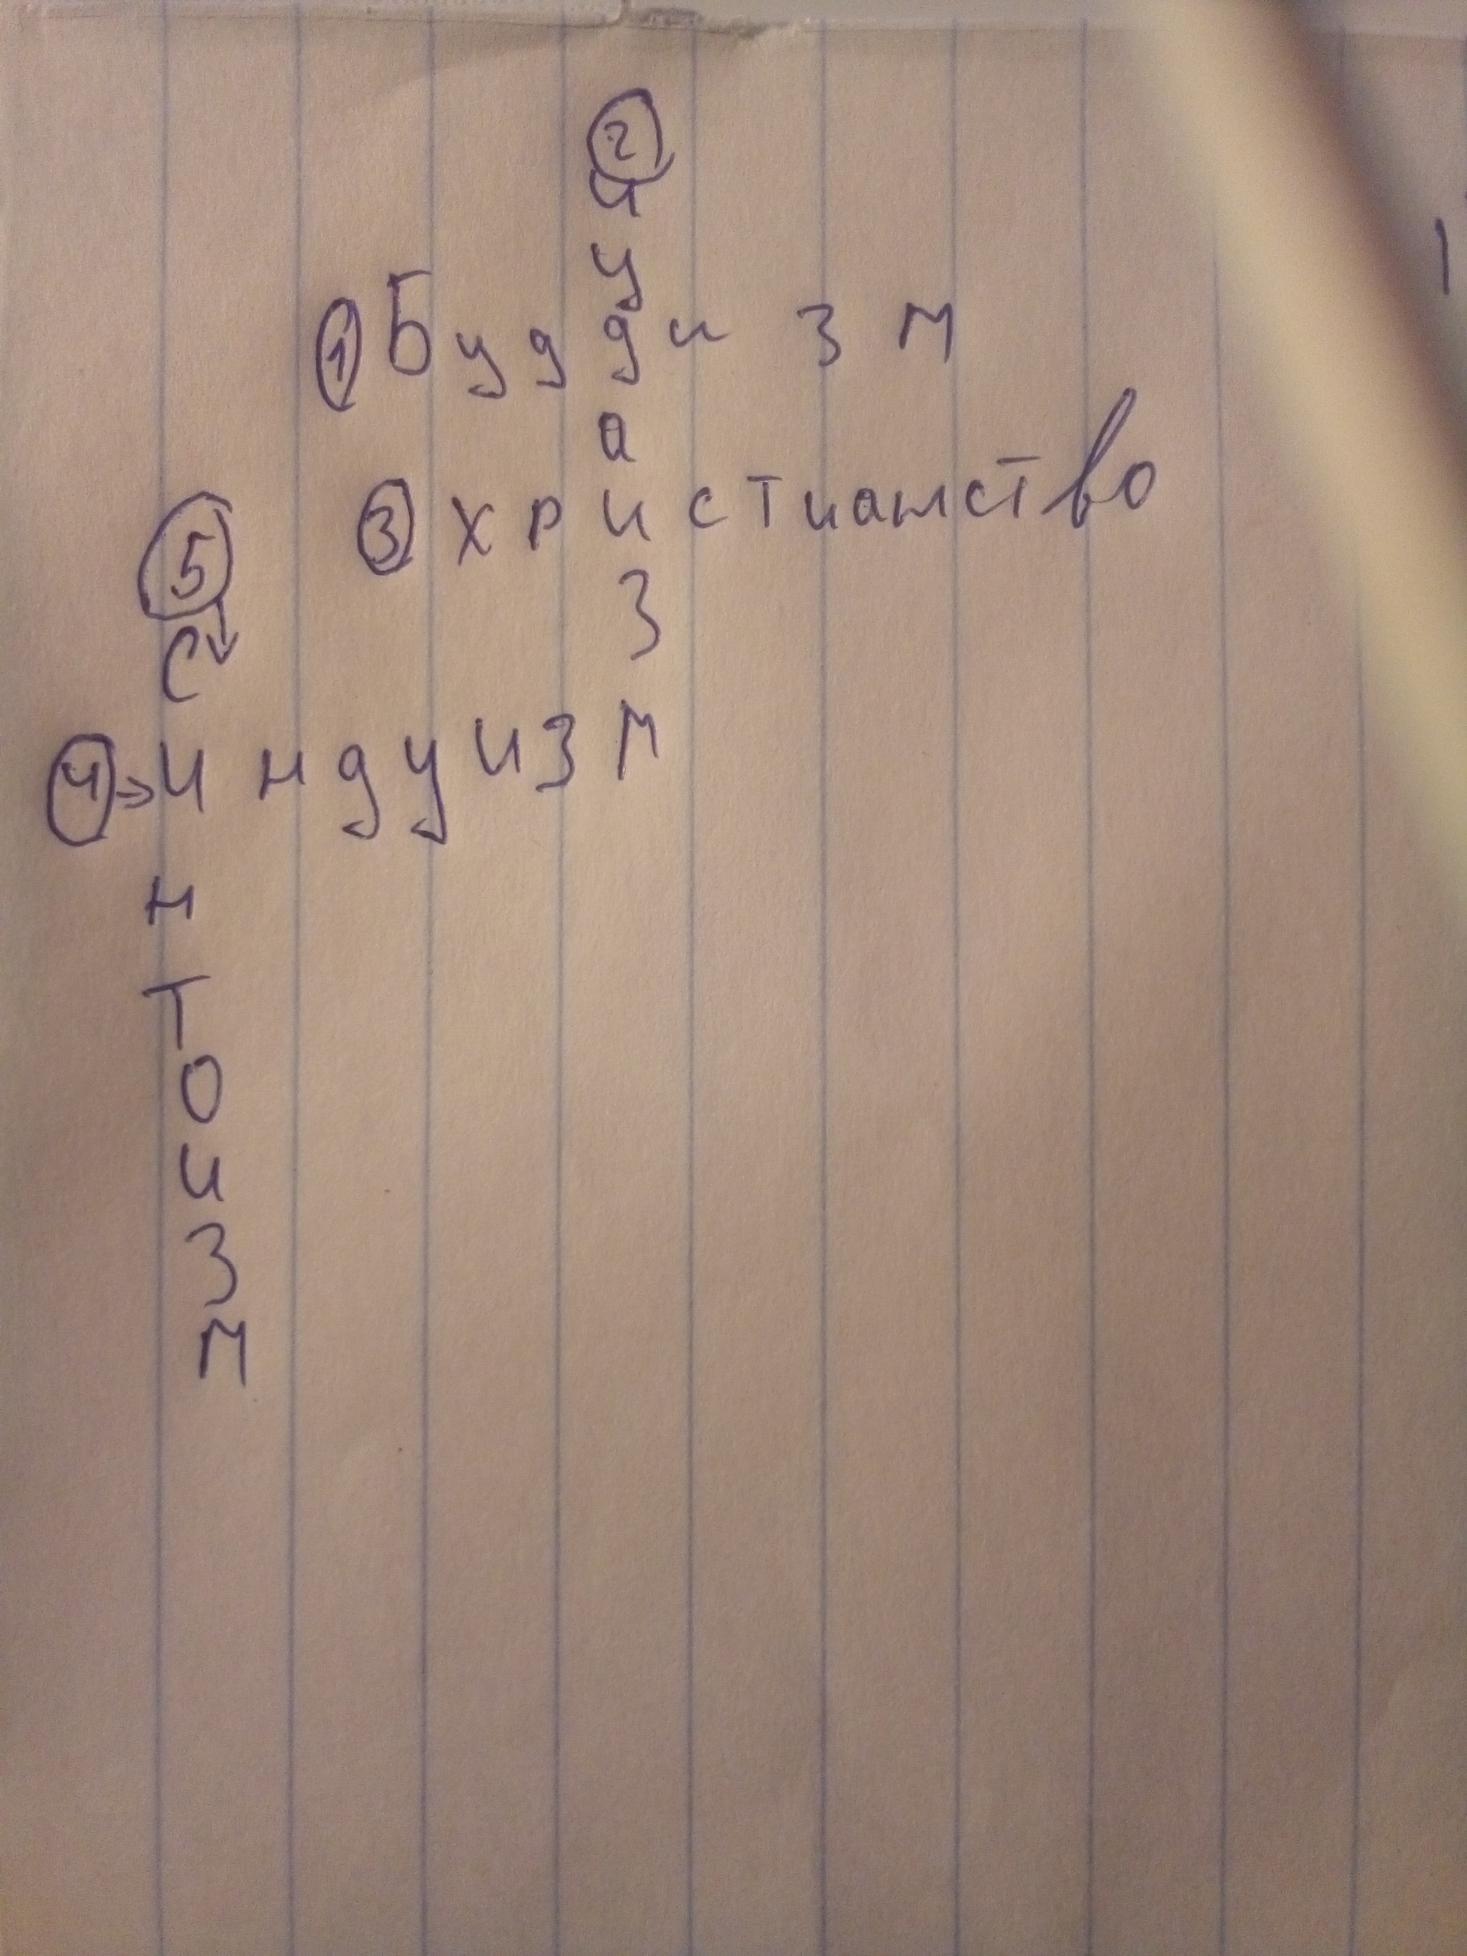 2
и
у
1 Буддизм
а
3 христианство
з
5
с
4 индуизм
н
т
о
и
з
м